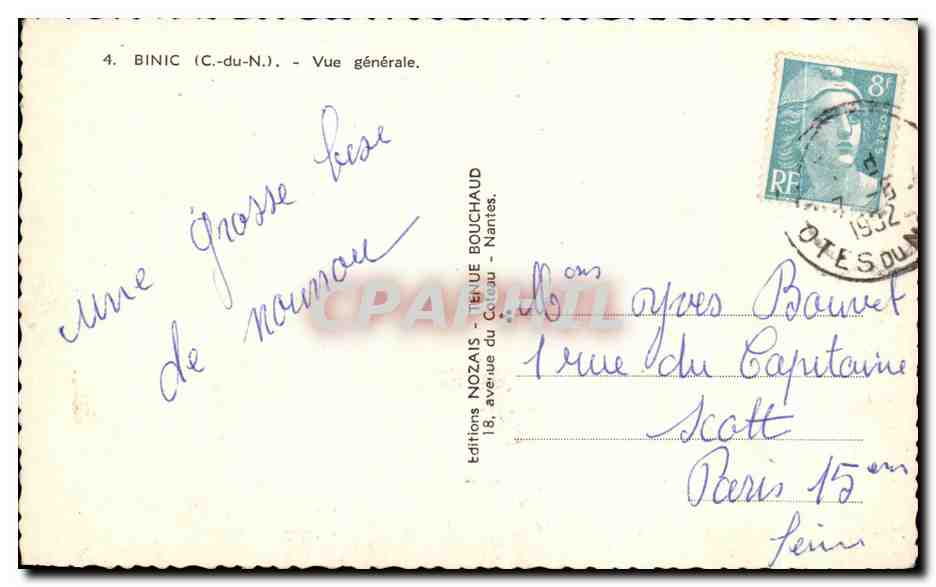 4. BINIC (C.-du-N.). - Vue générale.
une grosse bise
de nounou
Editions NOZAIS - TENUE BOUCHAUD
18, avenue du Coteau - Nantes.
8F
POSTES
RF
1952
OTES DU N
Mons Yves Bouvet
1 rue du Capitaine
Scott
Paris 15em
Seine
CPAPHIL